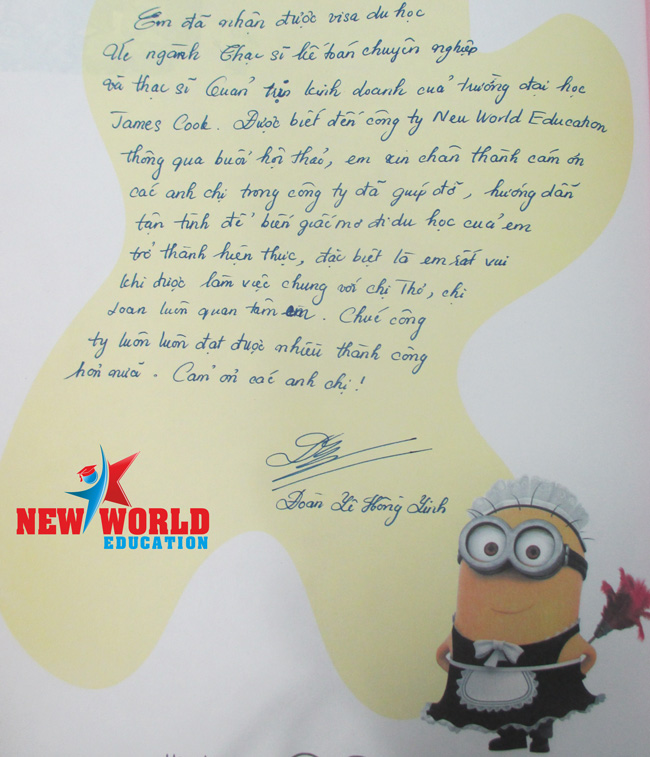 Em đã nhận được visa du học
Úc ngành Thạc sĩ kế toán chuyên nghiệp
và thạc sĩ Quản trị kinh doanh của trường đại học
James Cook. Được biết đến công ty New World Education
thông qua buổi hội thảo, em xin chân thành cám ơn
các anh chị trong công ty đã giúp đỡ, hướng dẫn
tận tình để biến giấc mơ đi du học của em
trở thành hiện thực, đặc biệt là em rất vui
khi được làm việc chung với chị Thơ, chị
Loan luôn quan tâm em. Chúc công
ty luôn luôn đạt được nhiều thành công
hơn nữa. Cảm ơn các anh chị!
Đoàn Hồng
NEW WORLD
EDUCATION